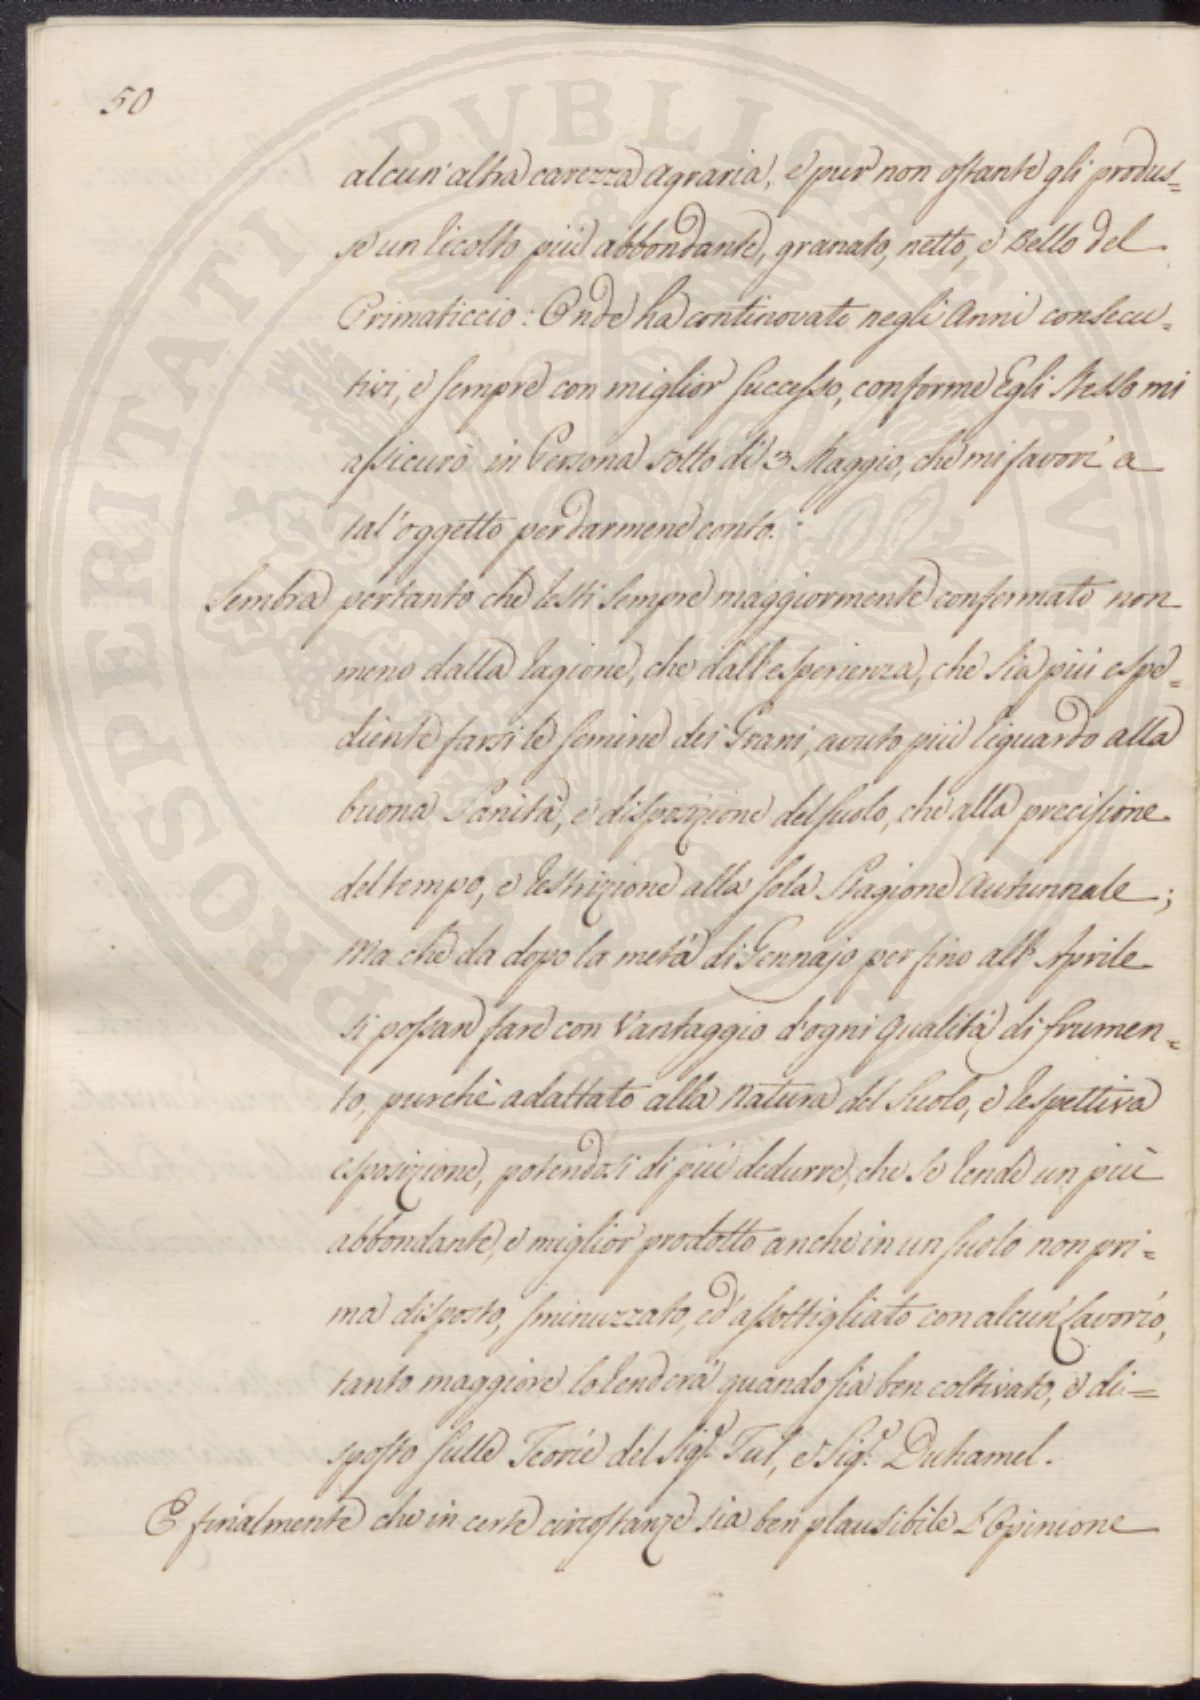 50
alcun'altra carezza agraria, e pur non ostante gli produs=
se un ricolto più abbondante, granato, netto, e bello del
Primaticcio: Onde ha continovato negli Anni consecu=
tivi, e sempre con miglior successo, conforme Egli Stesso mi
assicurò in Persona sotto dì 3 Maggio, che mi favorì a
tal'oggetto per darmene conto.
Sembra pertanto che resti sempre maggiormente confermato non
meno dalla ragione, che dall'esperienza, che sia più espe=
diente farsi le semine dei Grani, avuto più riguardo alla
buona Sanità, e disposizione del suolo, che alla precisione
del tempo, e restrizione alla sola Stagione Autunnale;
Ma che da dopo la metà di Gennajo per fino all'Aprile
si possan fare con Vantaggio d'ogni qualità di frumen=
to, purchè adattato alla Natura del Suolo, e respettiva
esposizione, potendosi di più dedurre, che se rende un più
abbondante, e miglior prodotto anche in un suolo non pri=
ma disposto, sminuzzato, ed assottigliato con alcun Lavorío,
tanto maggiore lo renderà quando sia ben coltivato, e di=
sposto sulle Teorie del Sigr. Tul, e Sigr. Duhamel.
E finalmente che in certe circostanze sia ben plausibile L'Opinione
PROSPERITATI PUBLICAE AUGENDAE